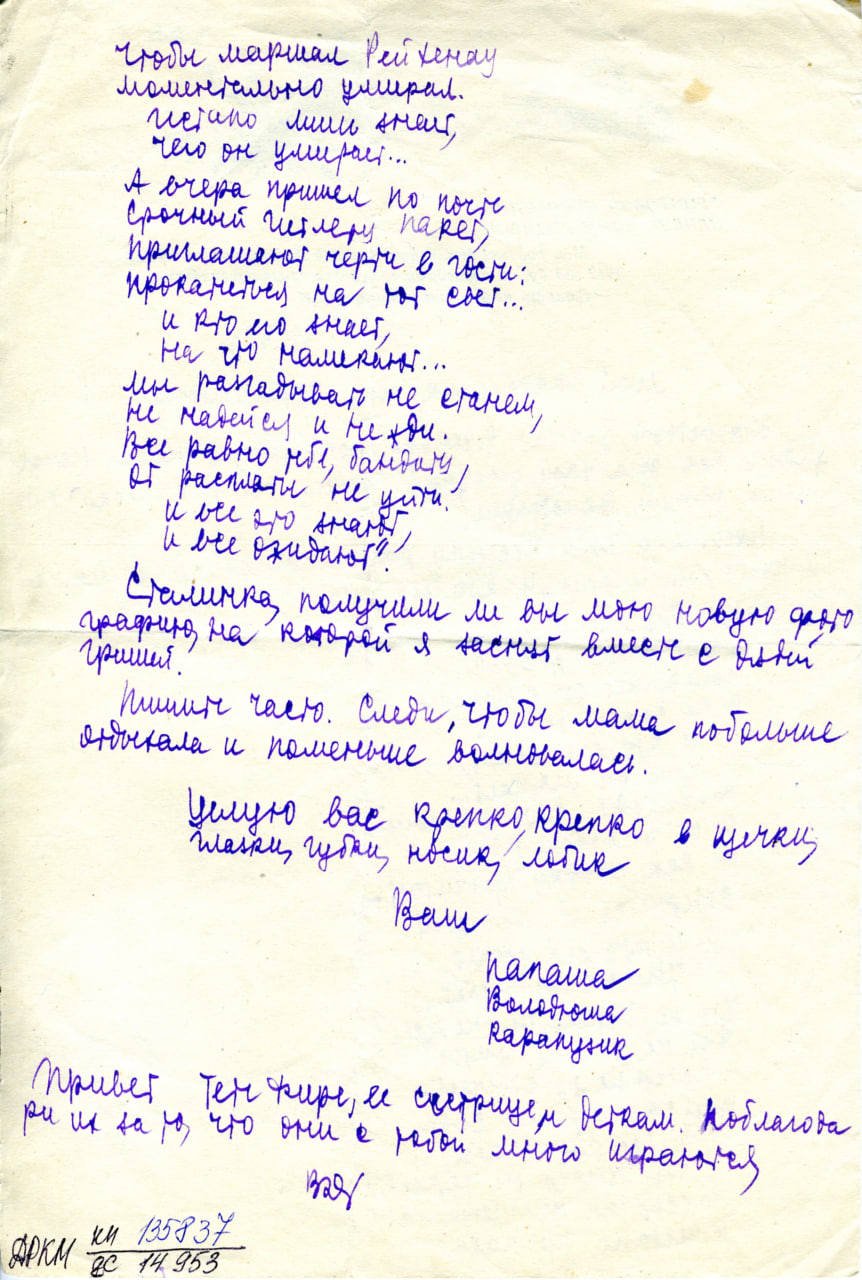 чтобы маршал Рейхенау
моментально умирал.
Гестапо лишь знает,
чего он умирает...
А вчера пришел по почте
срочный Гитлеру пакет,
Приглашают черти в гости:
прокатиться на тот свет...
и кто его знает,
на что намекают...
Мы разгадывать не станем,
не надейся и не жди.
Все равно тебе, бандиту,
от расплаты не уйти.
и все это знают,
и все ожидают".
Сталинка, получили ли вы мою новую фото
графию, на которой я заснят вместе с дядей
Гришей.
Пишите часто. Следи, чтобы мама побольше
отдыхала и поменьше волновалась.
Целую вас крепко, крепко в щечки,
глазки, губки, носик, лобик
Ваш
папаша
Володюша
Карапузик
Привет тете Фире, ее сестрице и деткам. Поблагода
ри их за то, что они с тобой много играются
ВЭД
АРКМ кп 135837
дс 14953